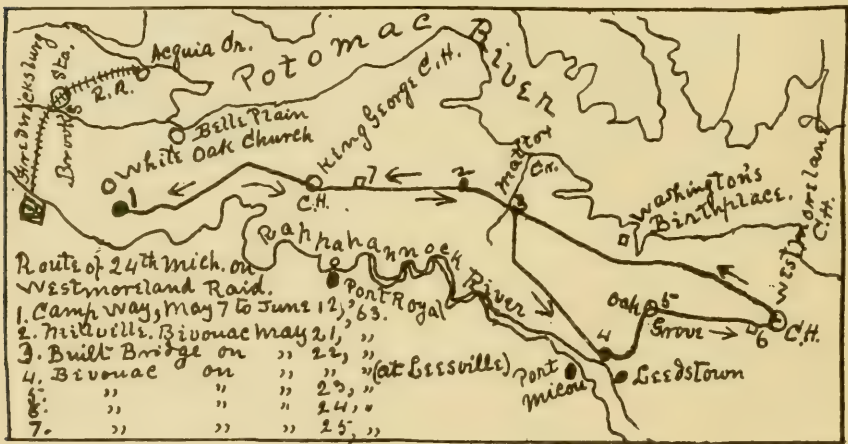 Potomac River
Acquia Cr.
R.R.
Sta.
Brooks
Fredericksburg
Belle Plain
White Oak Church
King George C.H.
C.H.
1
7
2
Mattox
Cr.
3
Washington's
Birthplace.
Westmoreland
C.H.
C.H.
Rappahannock River
Port Royal
Oak
5
Grove
6
4
Port
Micou
Leedstown
Route of 24th Mich. on
Westmoreland Raid.
1. Camp Way, May 7 to June 12, '63.
2. Millville. Bivouac May 21, "
3. Built Bridge on " 22, "
4. Bivouac on " " " (at Leesville)
5. " " " 23, "
6. " " " 24, "
7. " " " 25, "